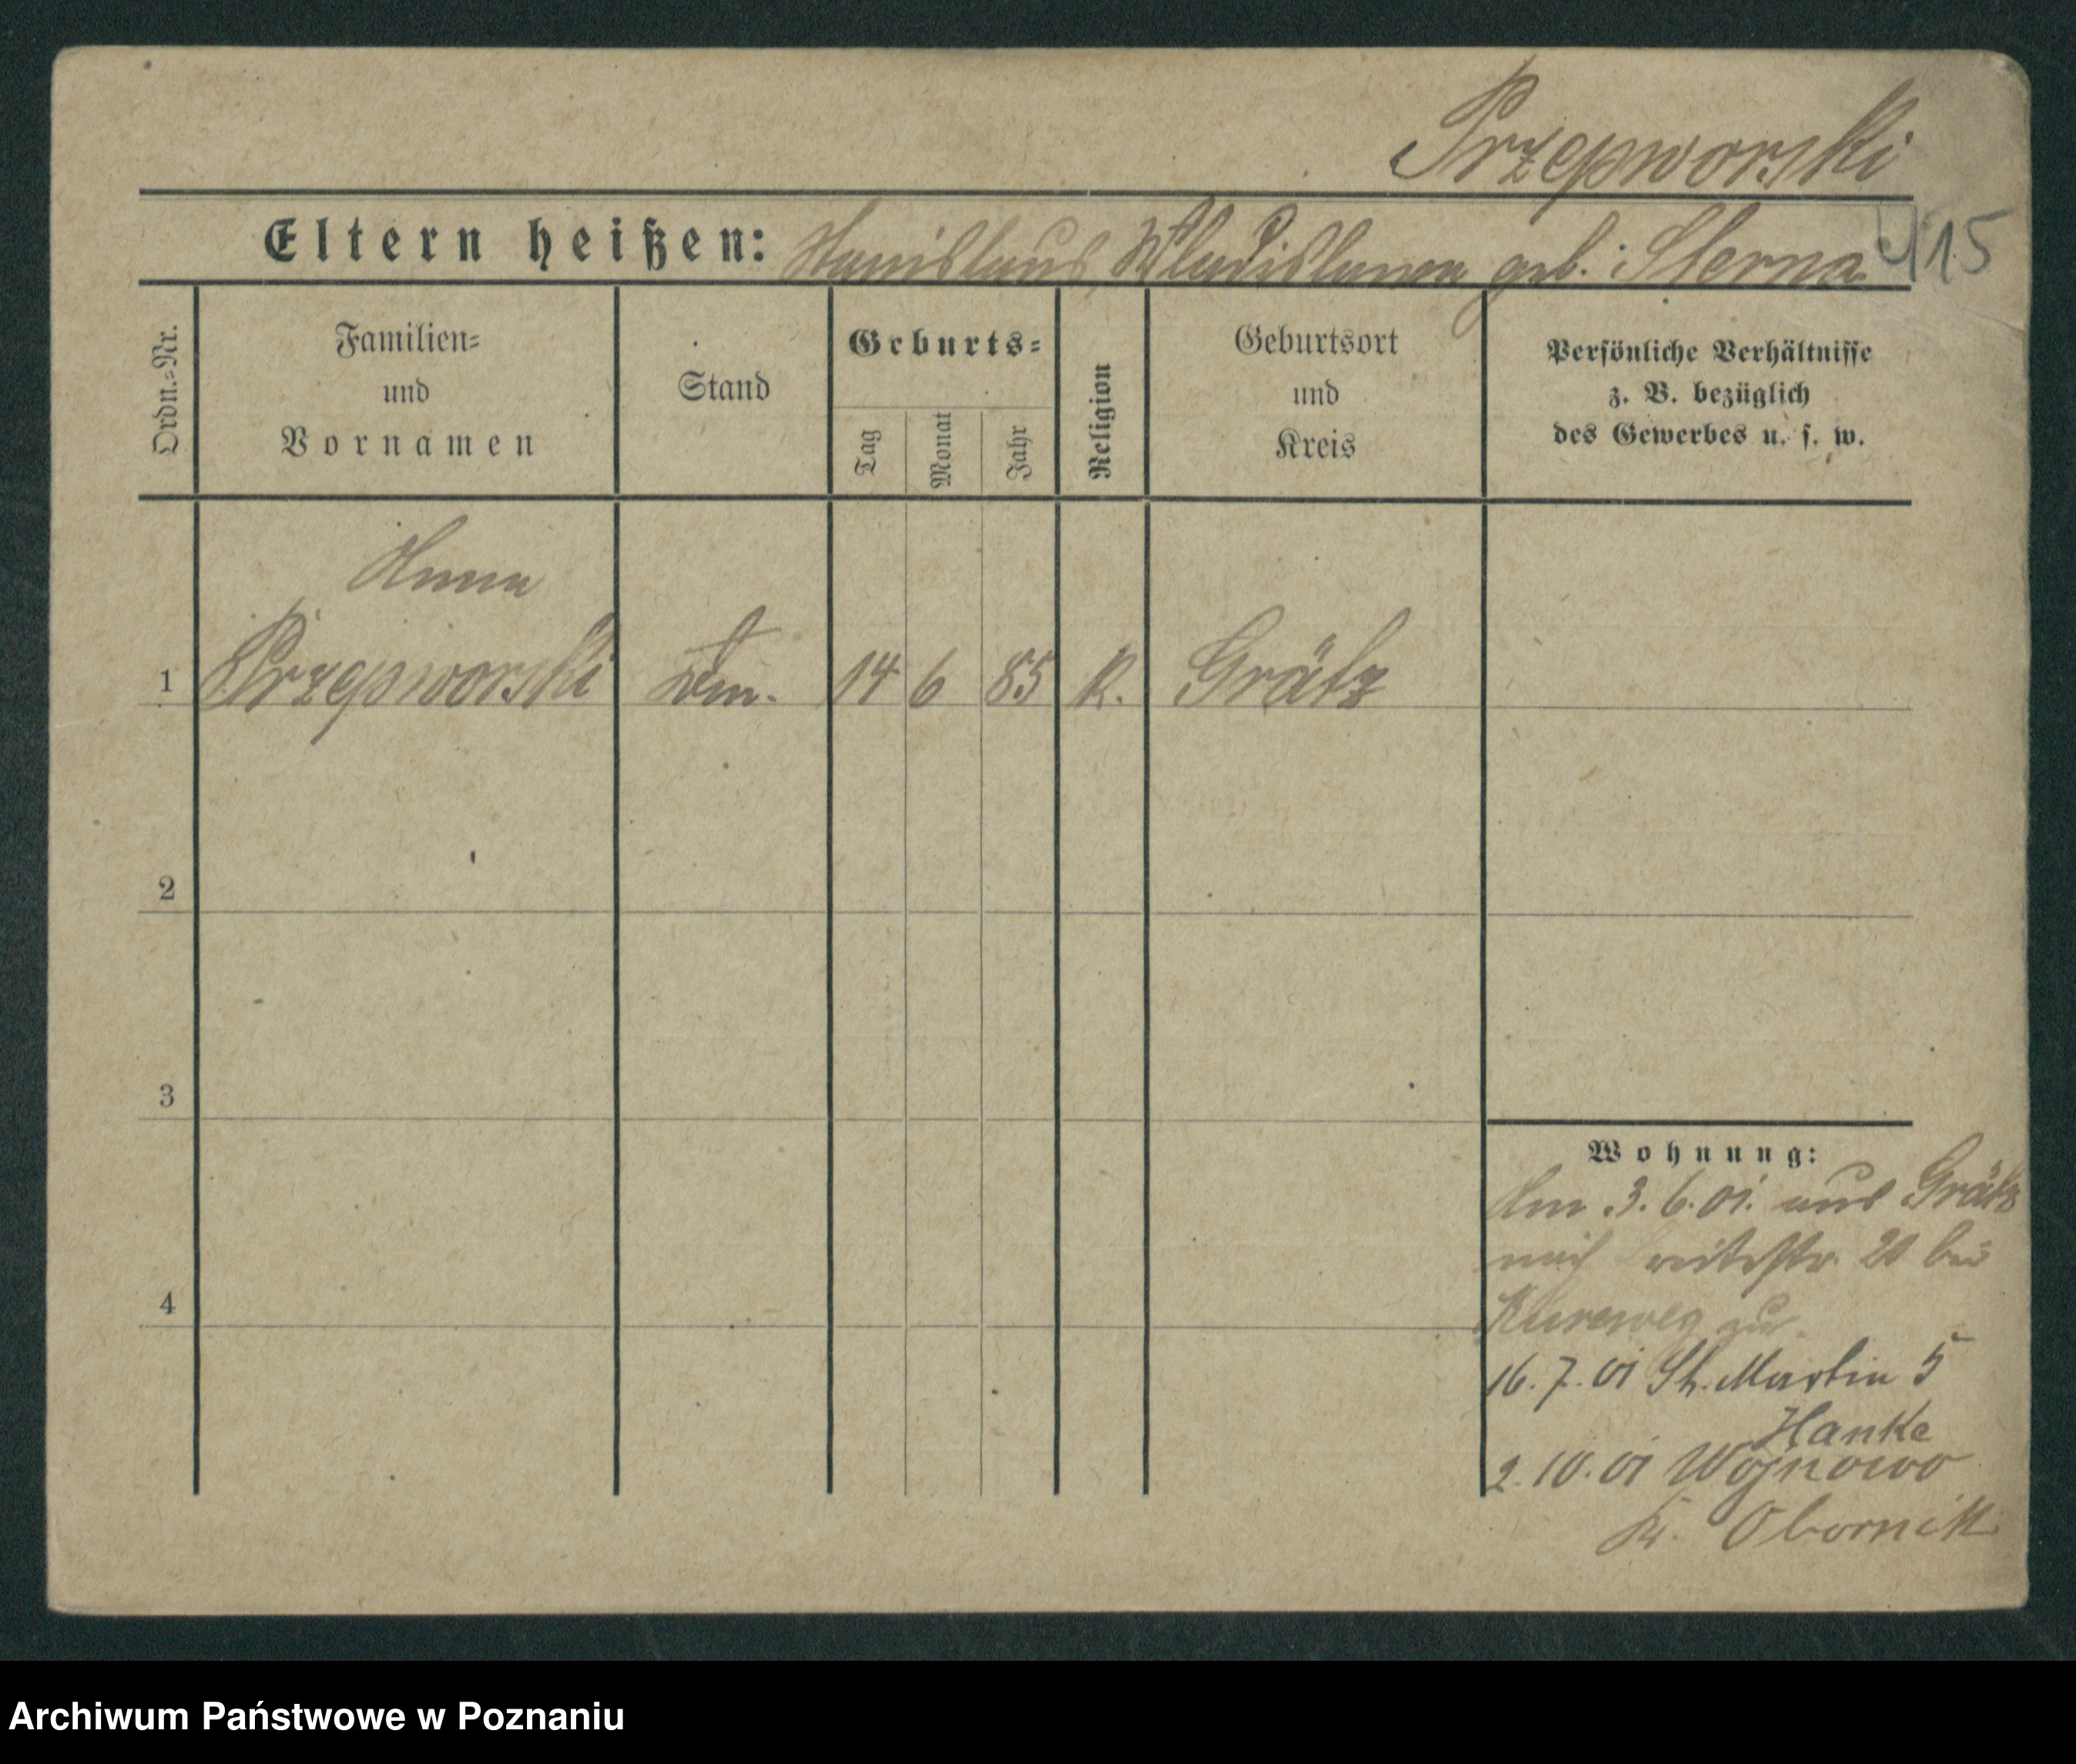 Przepworski
Eltern heißen: Stanislaus Wladislawa geb. Sterna
415
Ordn.=Nr.
Familien=
und
Vornamen
Stand
Geburts=
Tag
Monat
Jahr
Religion
Geburtsort
und
Kreis
Persönliche Verhältnisse
z. B. bezüglich
des Gewerbes u. s. w.
Anna
1 Przepworski 14 6 85 K. Grätz
2
3
4
Wohnung:
Am 3.6.01. aus Grätz
nach 20 bei
16.7.01 St. Martin 5
Hanke
2.10.01 Wojnowo
Kr. Obornik
Archiwum Państwowe w Poznaniu